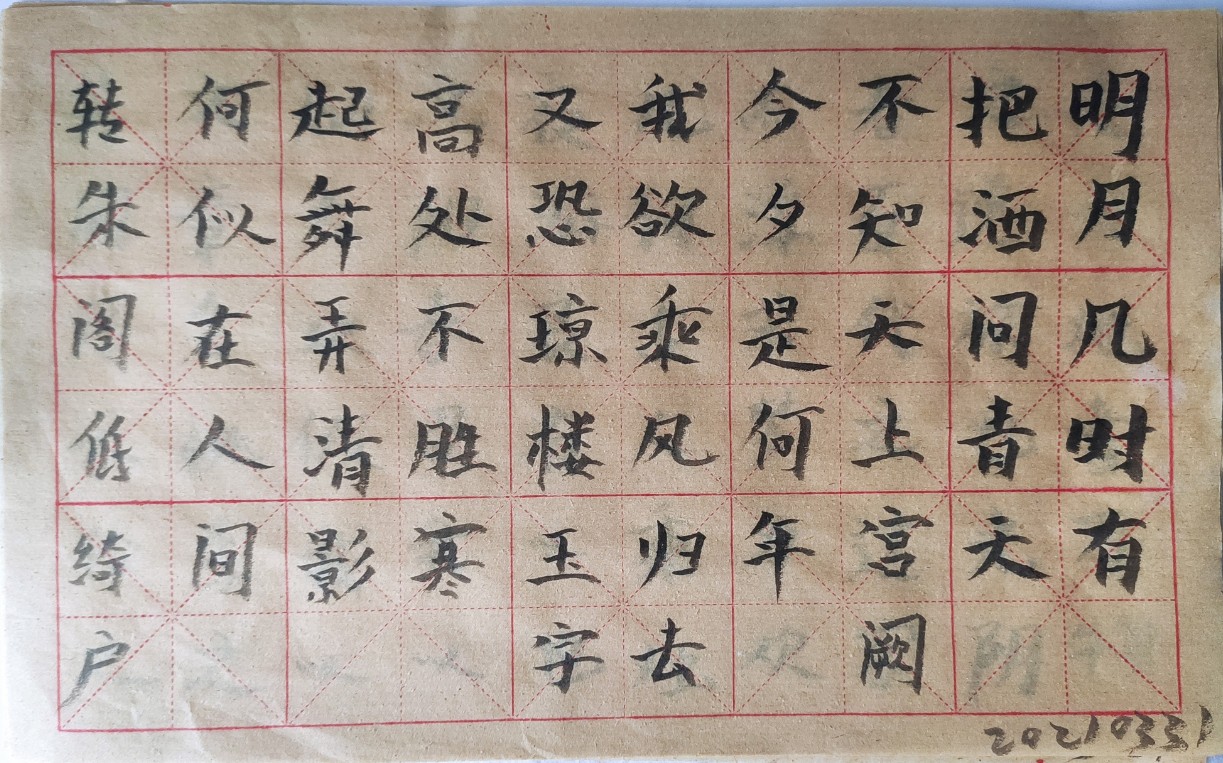 明月几时有
把酒问青天
不知天上宫阙
今夕是何年
我欲乘风归去
又恐琼楼玉宇
高处不胜寒
起舞弄清影
何似在人间
转朱阁低绮户
20210331